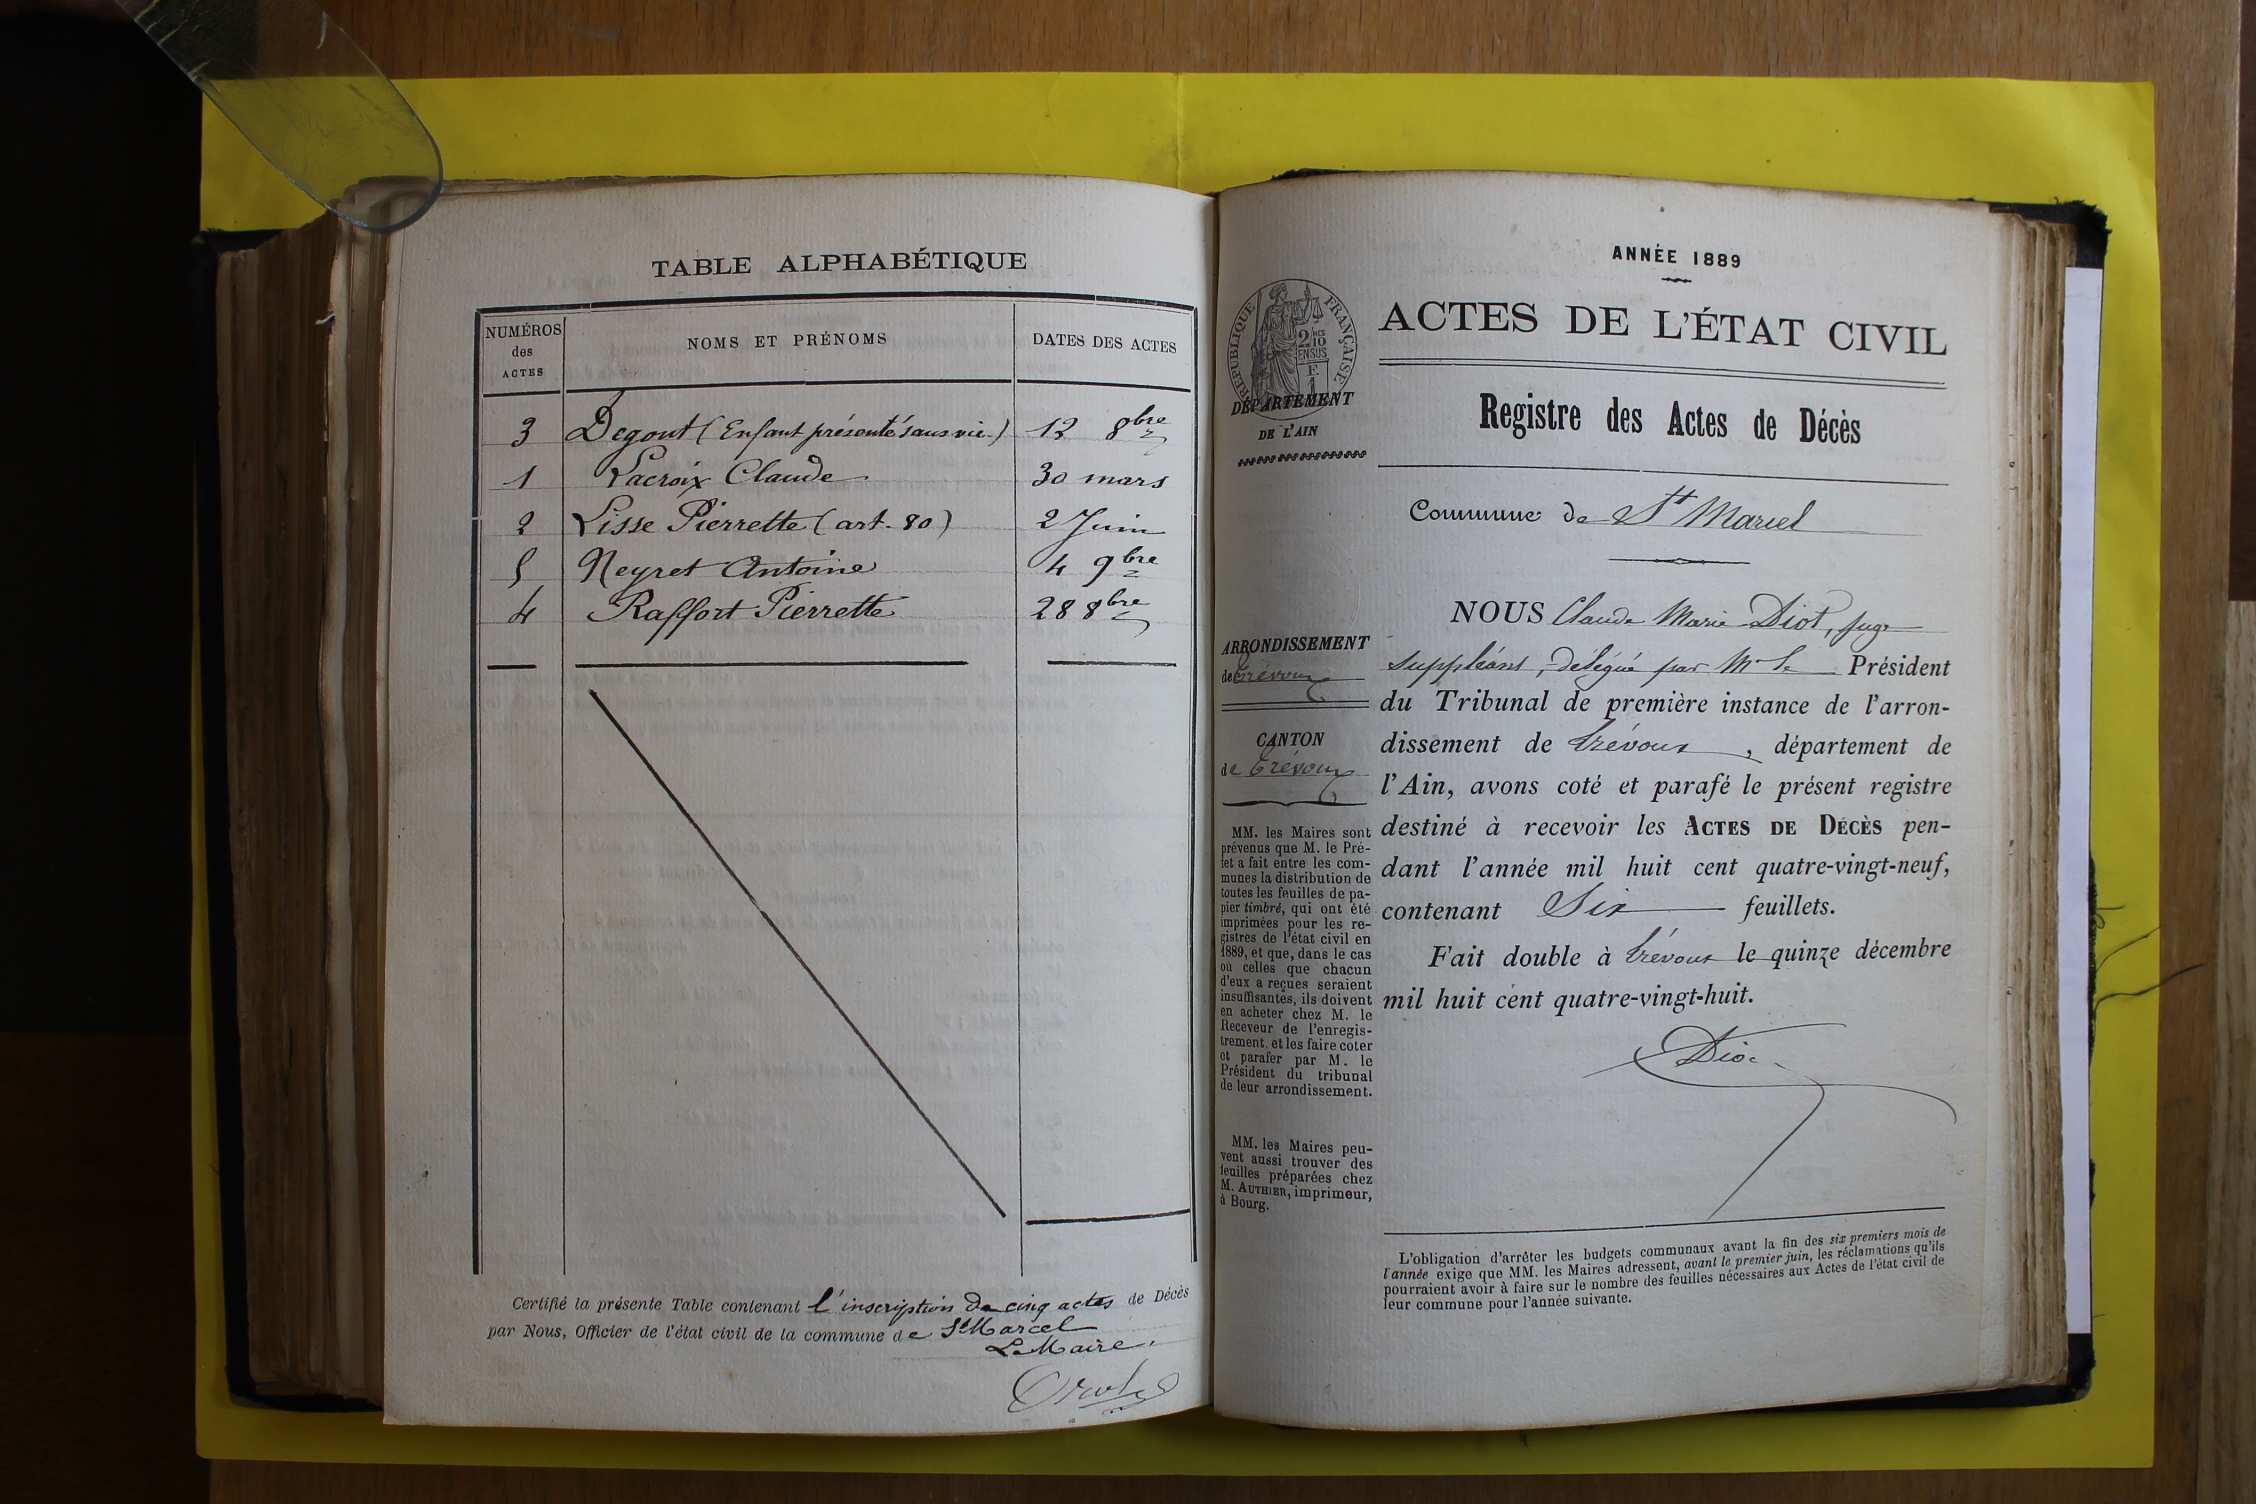 TABLE ALPHABÉTIQUE
NUMÉROS des ACTES
NOMS ET PRÉNOMS
DATES DES ACTES
3 Degout (Enfant présenté sans vie) 12 8bre
1 Lacroix Claude 30 mars
2 Lisse Pierrette (art. 80) 2 Juin
5 Neyret Antoine 4 9bre
4 Raffort Pierrette 28 8bre
Certifié la présente Table contenant l'inscription de cinq actes de Décès
par Nous, Officier de l'état civil de la commune de St Marcel
Le Maire
RÉPUBLIQUE FRANÇAISE
2/10
EN SUS
DÉPARTEMENT
DE L'AIN
ARRONDISSEMENT
de Trévoux
CANTON
de Trévoux
MM. les Maires sont
prévenus que M. le Pré-
fet a fait entre les com-
munes la distribution de
toutes les feuilles de pa-
pier timbré, qui ont été
imprimées pour les re-
gistres de l'état civil en
1889, et que, dans le cas
où celles que chacun
d'eux a reçues seraient
insuffisantes, ils doivent
en acheter chez M. le
Receveur de l'enregis-
trement, et les faire coter
et parafer par M. le
Président du tribunal
de leur arrondissement.
MM. les Maires peu-
vent aussi trouver des
feuilles préparées chez
M. AUTHIER, imprimeur,
à Bourg.
ANNÉE 1889
ACTES DE L'ÉTAT CIVIL
Registre des Actes de Décès
Commune de St Marcel
NOUS Claude Marie Diot, juge
suppléant, délégué par Mr le Président
du Tribunal de première instance de l'arron-
dissement de Trévoux, département de
l'Ain, avons coté et parafé le présent registre
destiné à recevoir les ACTES DE DÉCÈS pen-
dant l'année mil huit cent quatre-vingt-neuf,
contenant Six feuillets.
Fait double à Trévoux le quinze décembre
mil huit cent quatre-vingt-huit.
Diot
L'obligation d'arrêter les budgets communaux avant la fin des six premiers mois de
l'année exige que MM. les Maires adressent, avant le premier juin, les réclamations qu'ils
pourraient avoir à faire sur le nombre des feuilles nécessaires aux Actes de l'état civil de
leur commune pour l'année suivante.